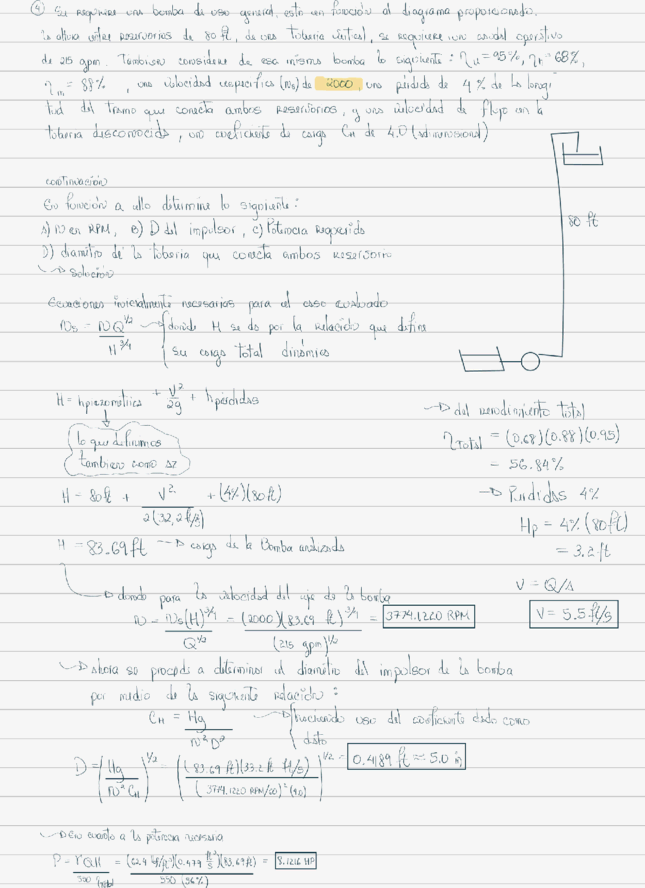 ④ Se requiere una bomba de uso general, esto en función al diagrama proporcionado.
la altura entre reservorios de 80 ft, de una tubería vertical, se requiere un caudal operativo
de 215 gpm. También considere de esa misma bomba lo siguiente: ηv = 95%, ηh = 68%,
ηm = 88%, una velocidad específica (Ns) de 2000, una pérdida de 4% de la longi
tud del tramo que conecta ambos reservorios, y una velocidad de flujo en la
tubería desconocida, un coeficiente de carga CH de 4.0 (adimensional)
80 ft
continuación
En función a ello determine lo siguiente:
a) N en RPM, B) D del impulsor, c) Potencia Requerida
D) diametro de la tubería que conecta ambos reservorios
→ solución
Ecuaciones inicialmente necesarias para el caso evaluado
Ns = NQ^1/2 / H^3/4 → donde H se da por la relación que define
su carga total dinámica
H = hpiezométrica + V²/2g + hpérdidas
lo que definimos
también como ΔZ
→ del rendimiento total
ηTotal = (0.68)(0.88)(0.95)
= 56.84%
→ Pérdidas 4%
Hp = 4% (80 ft)
= 3.2 ft
V = Q/A
V = 5.5 ft/s
H = 80 ft + V² / 2(32,2 ft/s) + (4%)(80 ft)
H = 83.69 ft --→ carga de la Bomba analizada
→ donde para la velocidad del eje de la bomba
N = Ns(H)^3/4 / Q^1/2 = (2000)(83.69 ft)^3/4 / (215 gpm)^1/2 = 3774.1220 RPM
→ ahora se procede a determinar el diametro del impulsor de la bomba
por medio de la siguiente relación:
CH = Hg / N²D² → haciendo uso del coeficiente dado como
dato
D = (Hg / N² CH)^1/2 = ((83.69 ft)(32.2 ft/s) / (3774.1220 RPM/60)² (4.0))^1/2 = 0.4189 ft ≈ 5.0 in
→ En cuanto a la potencia necesaria
P = γQH / 550 ηtotal = (62.4 lbf/ft³)(0.479 ft³/s)(83.69 ft) / 550 (56%) = 8.1216 HP